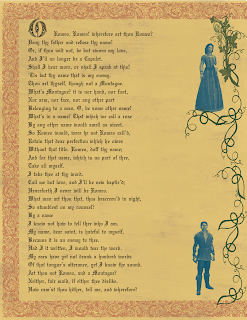 O Romeo, Romeo! wherefore art thou Romeo?
Deny thy father and refuse thy name!
Or, if thou wilt not, be but sworn my love,
And I'll no longer be a Capulet.
Shall I hear more, or shall I speak at this?
'Tis but thy name that is my enemy.
Thou art thyself, though not a Montague.
What's Montague? it is nor hand, nor foot,
Nor arm, nor face, nor any other part
Belonging to a man. O, be some other name!
What's in a name? That which we call a rose
By any other name would smell as sweet.
So Romeo would, were he not Romeo call'd,
Retain that dear perfection which he owes
Without that title. Romeo, doff thy name;
And for that name, which is no part of thee,
Take all myself.
I take thee at thy word.
Call me but love, and I'll be new baptiz'd;
Henceforth I never will be Romeo.
What man art thou that, thus bescreen'd in night,
So stumblest on my counsel?
By a name
I know not how to tell thee who I am.
My name, dear saint, is hateful to myself,
Because it is an enemy to thee.
Had I it written, I would tear the word.
My ears have yet not drunk a hundred words
Of that tongue's utterance, yet I know the sound.
Art thou not Romeo, and a Montague?
Neither, fair maid, if either thee dislike.
How cam'st thou hither, tell me, and wherefore?